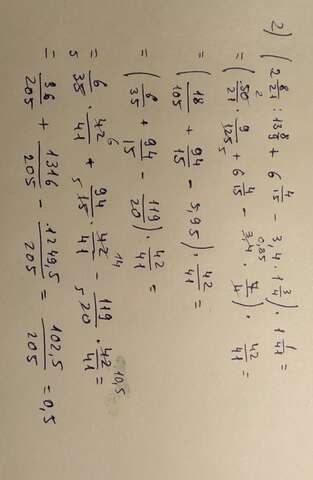 2) (2 8/21 : 13 8/9 + 6 4/15 - 3,4 · 1 3/4) · 1 1/41 =
= (50/21 · 9/125 + 6 4/15 - 3,4 · 7/4) · 42/41 2 5 0,85
= (18/105 + 94/15 - 5,95) · 42/41 =
= (6/35 + 94/15 - 119/20) · 42/41 =
= 6/35 · 42/41 + 94/15 · 42/41 - 119/20 · 42/41 = 5 6 5 14 10,5
= 36/205 + 1316/205 - 1249,5/205 = 102,5/205 = 0,5